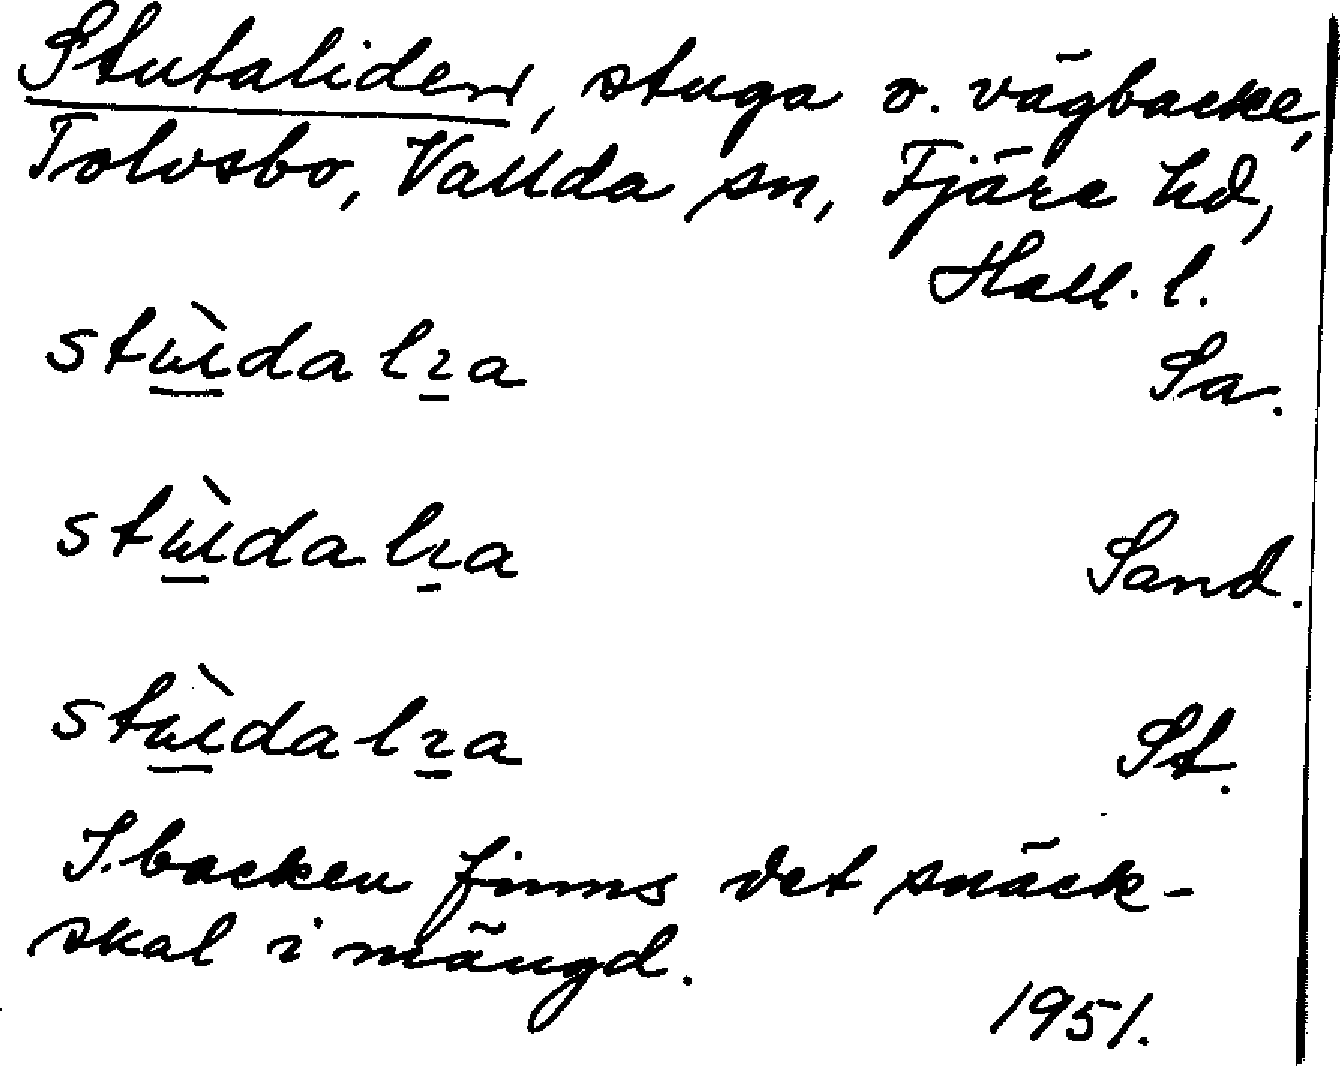 Stutaliden, stuga o. vägbacke,
Tolvsbo, Vallda sn, Fjäre hd,
Hall. l.
stɯ̀dalɿa Sa.
stɯ̀dalɿa Sand.
stɯ̀dalɿa St.
I backen finns det snäck-
skal i mängd.
1951.